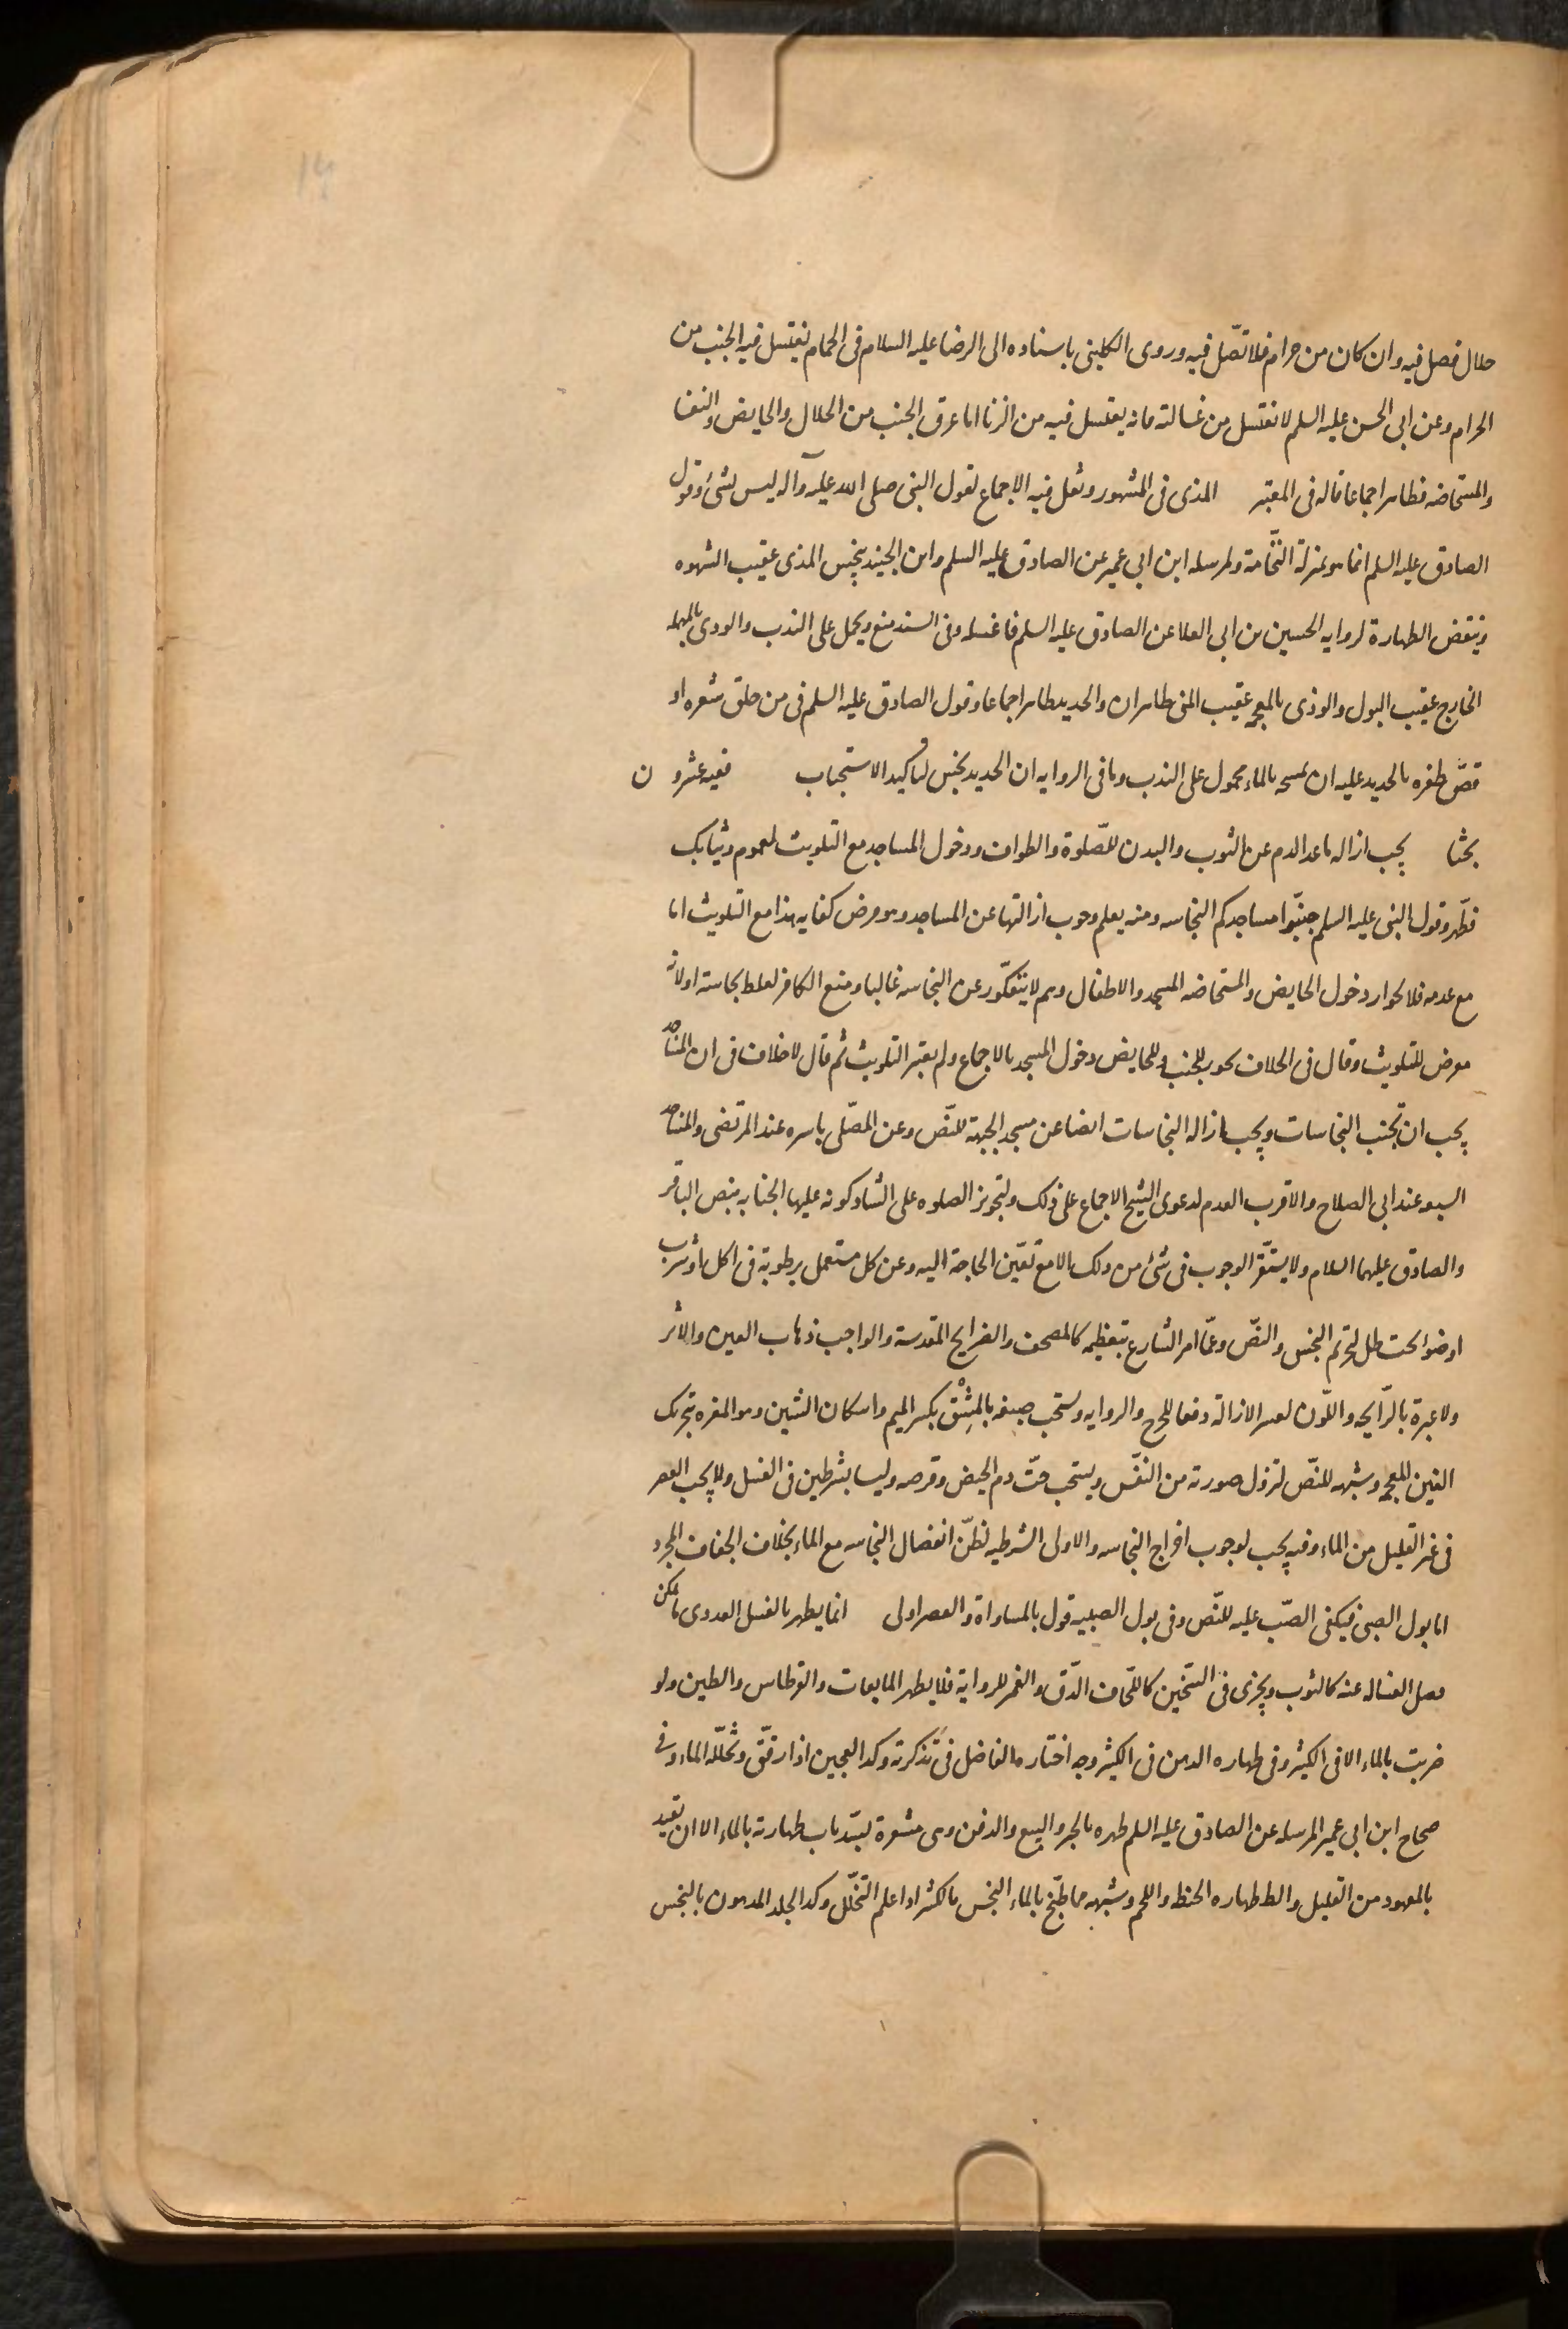 حلال فصل فيه وان كان من حرام فلا تصّل فيه وروى الكلينى باسناده الى الرضا عليه السلام فى الحمام يغتسل فيه الجنب من
الحرام وعن ابى الحسن عليه السلم لا تغتسل من غسالته فانه يغتسل فيه من الزنا اما عرق الجنب من الحلال والحايض والنفسا
والمستحاضه فطاهر اجماعا قاله فى المعتبر المذى فى المشهور ونقل فيه الاجماع لقول النبى صلى الله عليه وآله ليس بشئ وقول
الصادق عليه السلم انما هو بمنزلة النّخامة ولمرسله ابن ابى عمير عن الصادق عليه السلم وابن الجنيد ينجّس المذى عقيب الشهوه
وينقض الطهارة لروايه الحسين بن ابى العلا عن الصادق عليه السلم فاغسله وفى السند منع ويحمل على الندب والودى بالمهمله
الخارج عقيب البول والوذى بالمعجمه عقيب المنى طاهران والحديد طاهر اجماعا وقول الصادق عليه السلم فى من حلق شعره او
قصّ ظفره بالحديد عليه ان يمسحه بالماء محمول على الندب وما فى الروايه ان الحديد نجس لتاكيد الاستحباب ففيه عشرون
بحثا يجب ازاله ما عدا الدم عن الثوب والبدن للصّلوة والطواف ودخول المساجد مع التلويث لعموم وثيابك
فطّهر وقول النبى عليه السلم جنبّوا مساجدكم النجاسه ومنه يعلم وجوب ازالتها عن المساجد وهو فرض كفايه هذا مع التلويث اما
مع عدمه فلا لجواز دخول الحايض والمستحاضه المسجد والاطفال وهم لا ينفكّون عن النجاسه غالبا ومنع الكافر لغلظ نجاسته او لانه
معرض للتلويث وقال فى الخلاف يجوز للجنب وللحايض دخول المسجد بالاجماع ولم يعتبر التلويث ثم قال لا خلاف فى ان المساجد
يجب ان تجنب النجاسات ويجب ازاله النجاسات ايضا عن مسجد الجبهة للنّص وعن المصّلى باسره عند المرتضى والمساجد
السبعه عند ابى الصلاح والاقرب العدم لدعوى الشيخ الاجماع على ذلك ولتجويز الصلوه على الشاذكونه عليها الجنابه بنص الباقر
والصادق عليهما السلام ولا يستقّر الوجوب فى شئ من ذلك الا مع تعيّن الحاجة اليه وعن كل مستعمل برطوبة فى اكل او شرب
او ضوء تحت ظل لتحريم النجس والنصّ وعمّا امر الشارع بتعظيمه كالمصحف والضرايح المقدسة والواجب ذهاب العين والاثر
ولا عبرة بالرّايحه واللّون لعسر الازالة دفعا للحرج والروايه ويستحب صبغه بالمِشْق بكسر الميم واسكان الشين وهو المغره بتحريك
الغين المعجمه وشبهه للنّص لتزول صورته من النفّس ويستحب حتّ دم الحيض وقرصه وليسا بشرطين فى الغسل ولا يجب العصر
فى غير القليل من الماء وفيه يجب لوجوب اخراج النجاسه والاولى الشرطيه لظنّ انفصال النجاسه مع الماء بخلاف الجفاف المجرد
اما بول الصبى فيكفى الصّب عليه للنّص وفى بول الصبيه قول بالمساواة والعصر اولى انما يطهر بالغسل العددى ما يمكن
فصل الغساله عنه كالثوب ويجزى فى الثخّين كاللحّاف الدّق والغمز للرواية فلا يطهر المايعات والقرطاس والطين ولو
ضربت بالماء الا فى الكثير وفى طهاره الدهن فى الكثير وجه اختاره الفاضل فى تذكرته وكذا العجين اذا رقّق وتخلّله الماء وفى
صحاح ابن ابى عمير المرسله عن الصادق عليه السلم طهره بالخبز والبيع والدفن وهى مشعرة بسّد باب طهارته بالماء الا ان تقيد
بالمعهود من القليل والظ طهاره الحنطه واللحم وشبهه مما طبّخ بالماء النجس بالكثير اذا علم التخلّل وكذا الجلد المدهون بالنجس